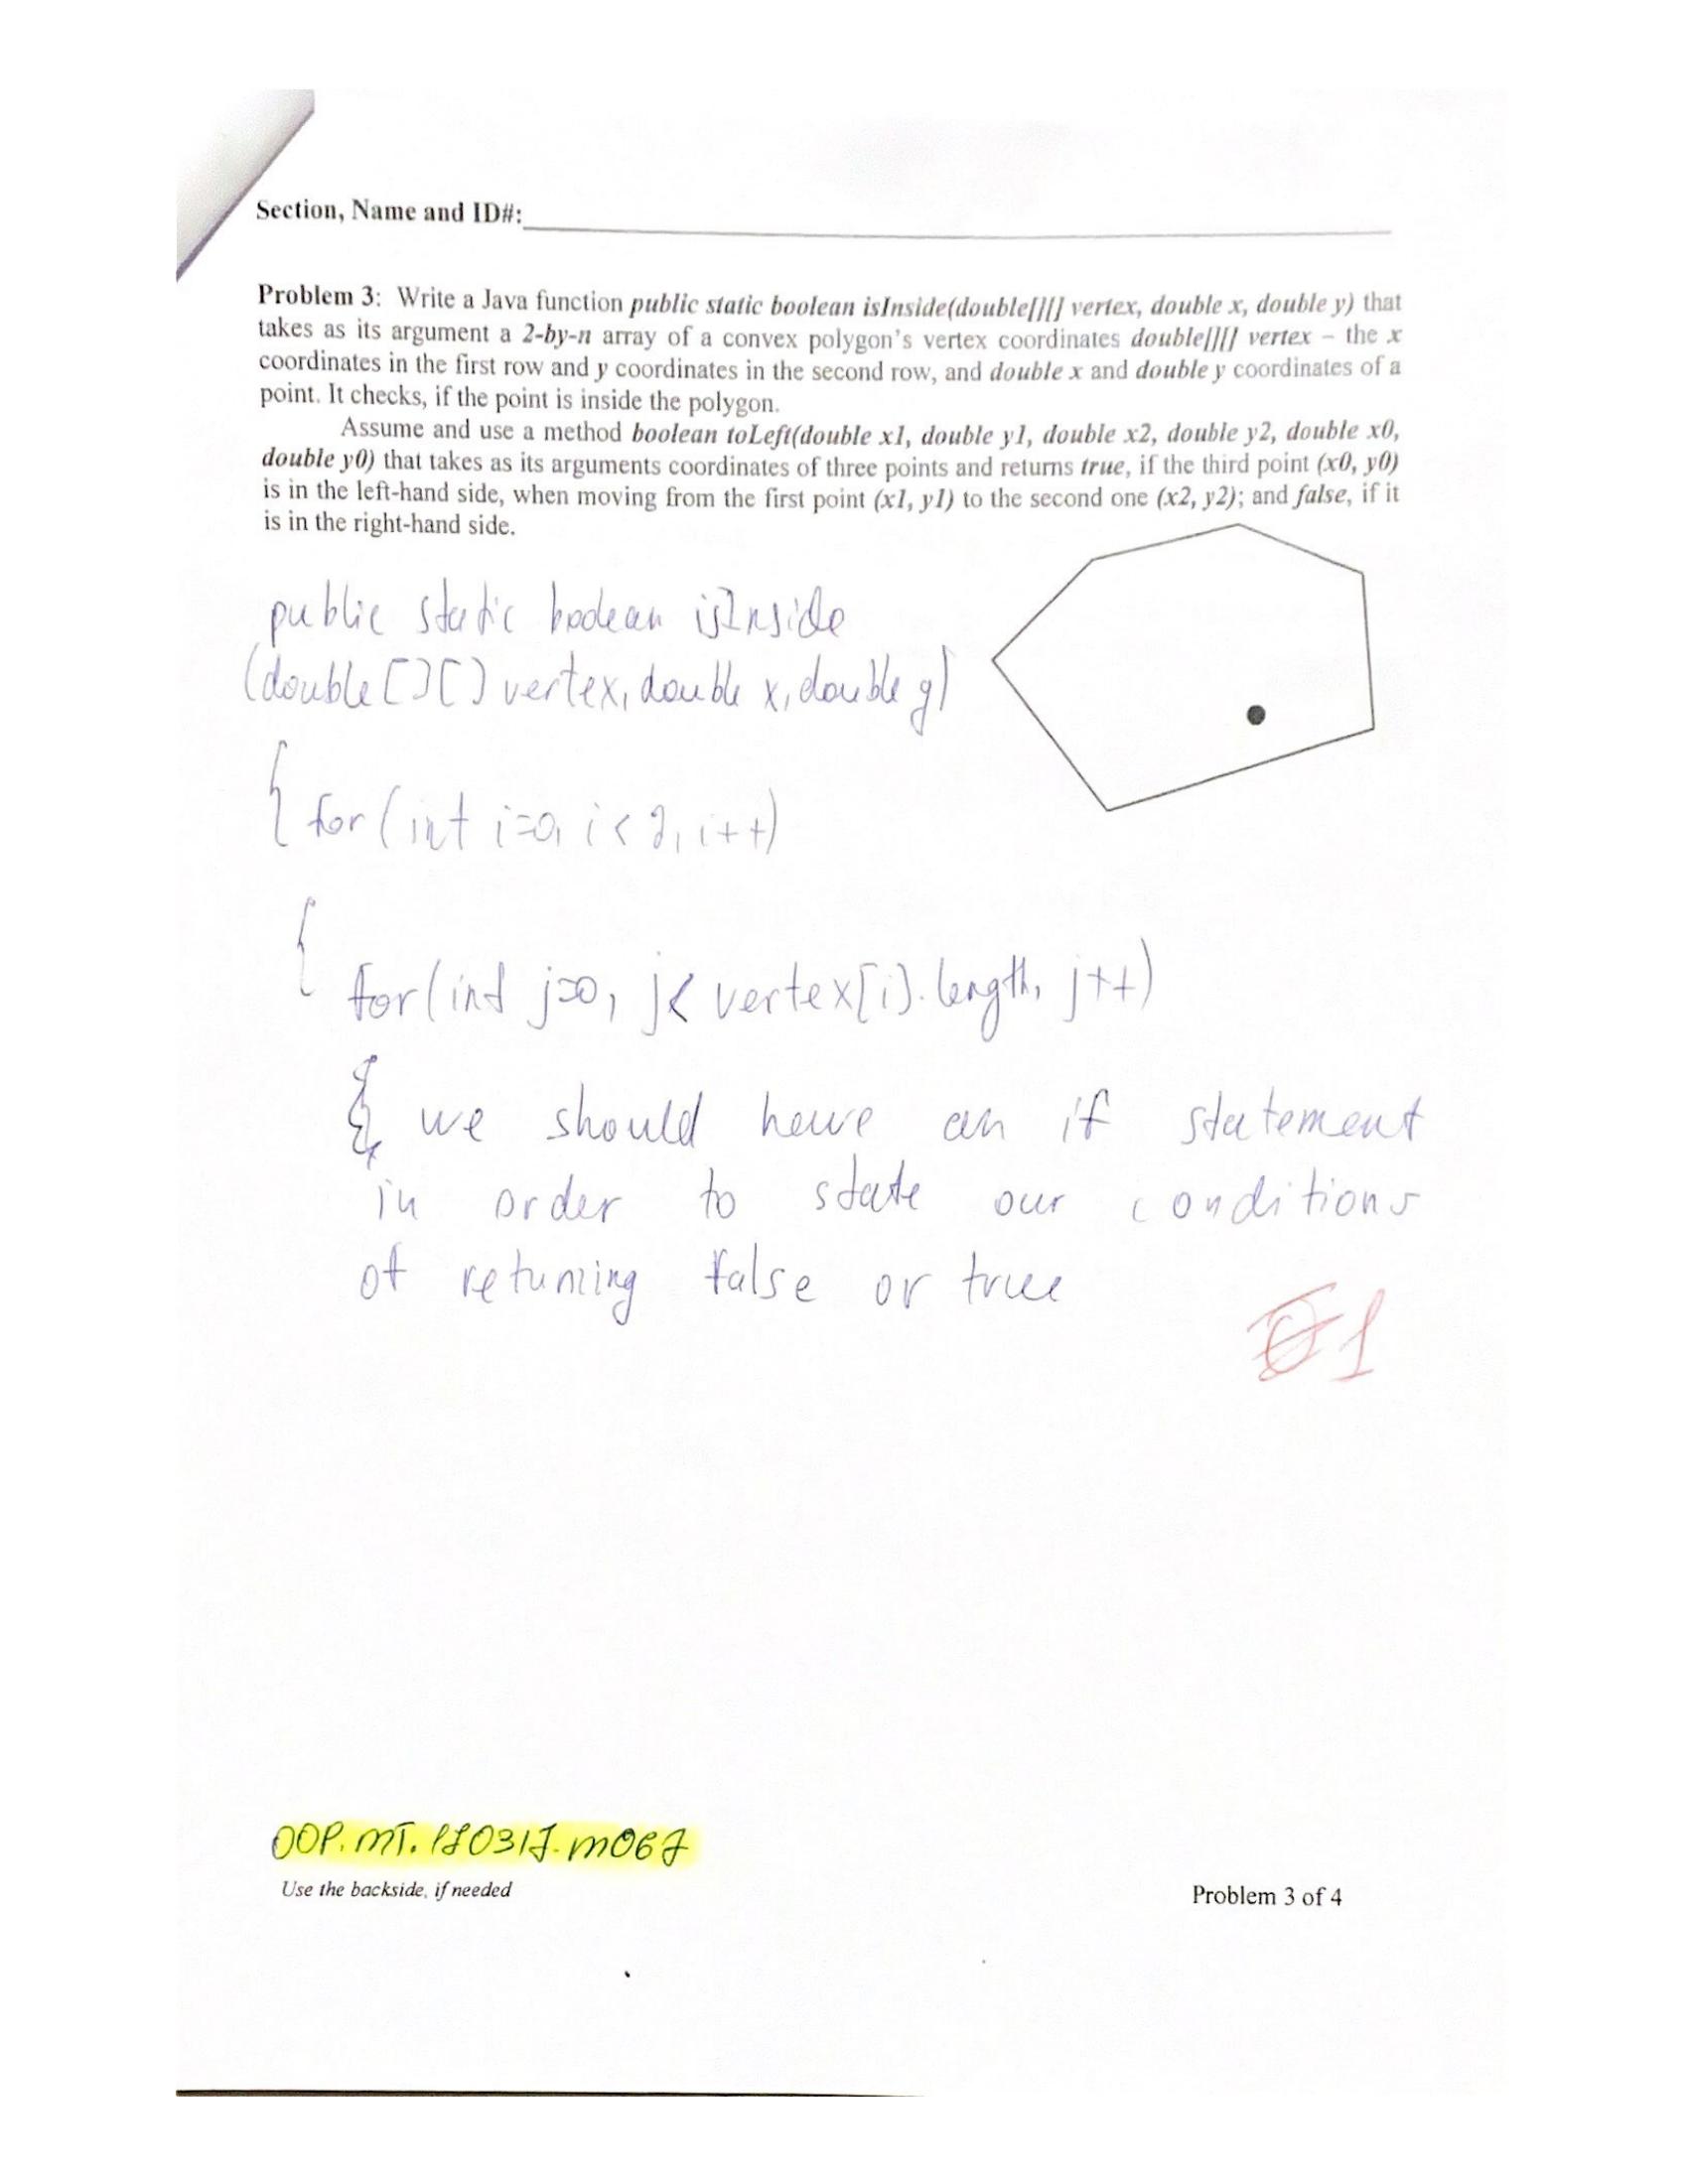 Section, Name and ID#:
Problem 3: Write a Java function public static boolean isInside(double[][] vertex, double x, double y) that
takes as its argument a 2-by-n array of a convex polygon's vertex coordinates double[][] vertex – the x
coordinates in the first row and y coordinates in the second row, and double x and double y coordinates of a
point. It checks, if the point is inside the polygon.
Assume and use a method boolean toLeft(double x1, double y1, double x2, double y2, double x0,
double y0) that takes as its arguments coordinates of three points and returns true, if the third point (x0, y0)
is in the left-hand side, when moving from the first point (x1, y1) to the second one (x2, y2); and false, if it
is in the right-hand side.
public static boolean isInside
(double [] [] vertex, double x, double y)
{ for (int i=0, i < 2, i++)
{
for (int j=0, j < vertex[i].length, j++)
{ we should have an if statement
in order to state our conditions
of returning false or true
1
OOP.MT.170317.M067
Use the backside, if needed
Problem 3 of 4